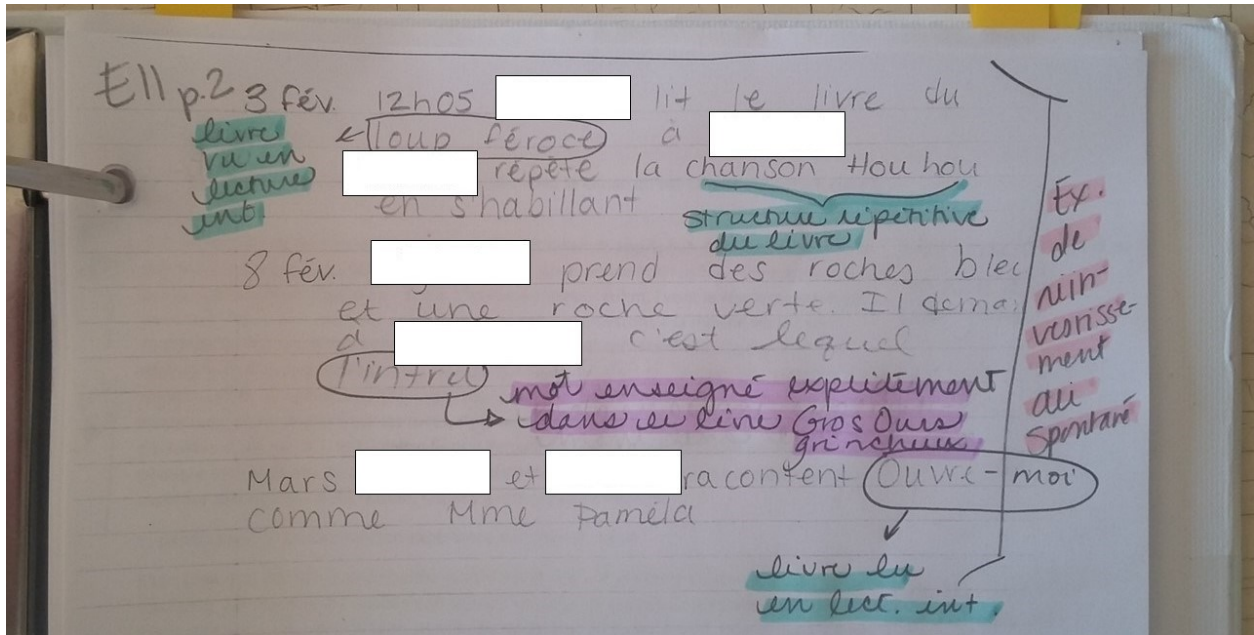 E11 p.2 3 fév. 12h05 lit le livre du
loup féroce à
livre
vu en
lecture
int
répète la chanson Hou hou
en s'habillant
structure répétitive
du livre
8 fév. prend des roches bleu
et une roche verte. Il deman
à c'est lequel
l'intru
mot enseigné explicitement
dans le livre Gros Ours
grincheux
Mars et racontent Ouvre-moi
comme Mme Paméla
livre lu
en lect. int.
Ex.
de
réin-
vestisse-
ment
spontané